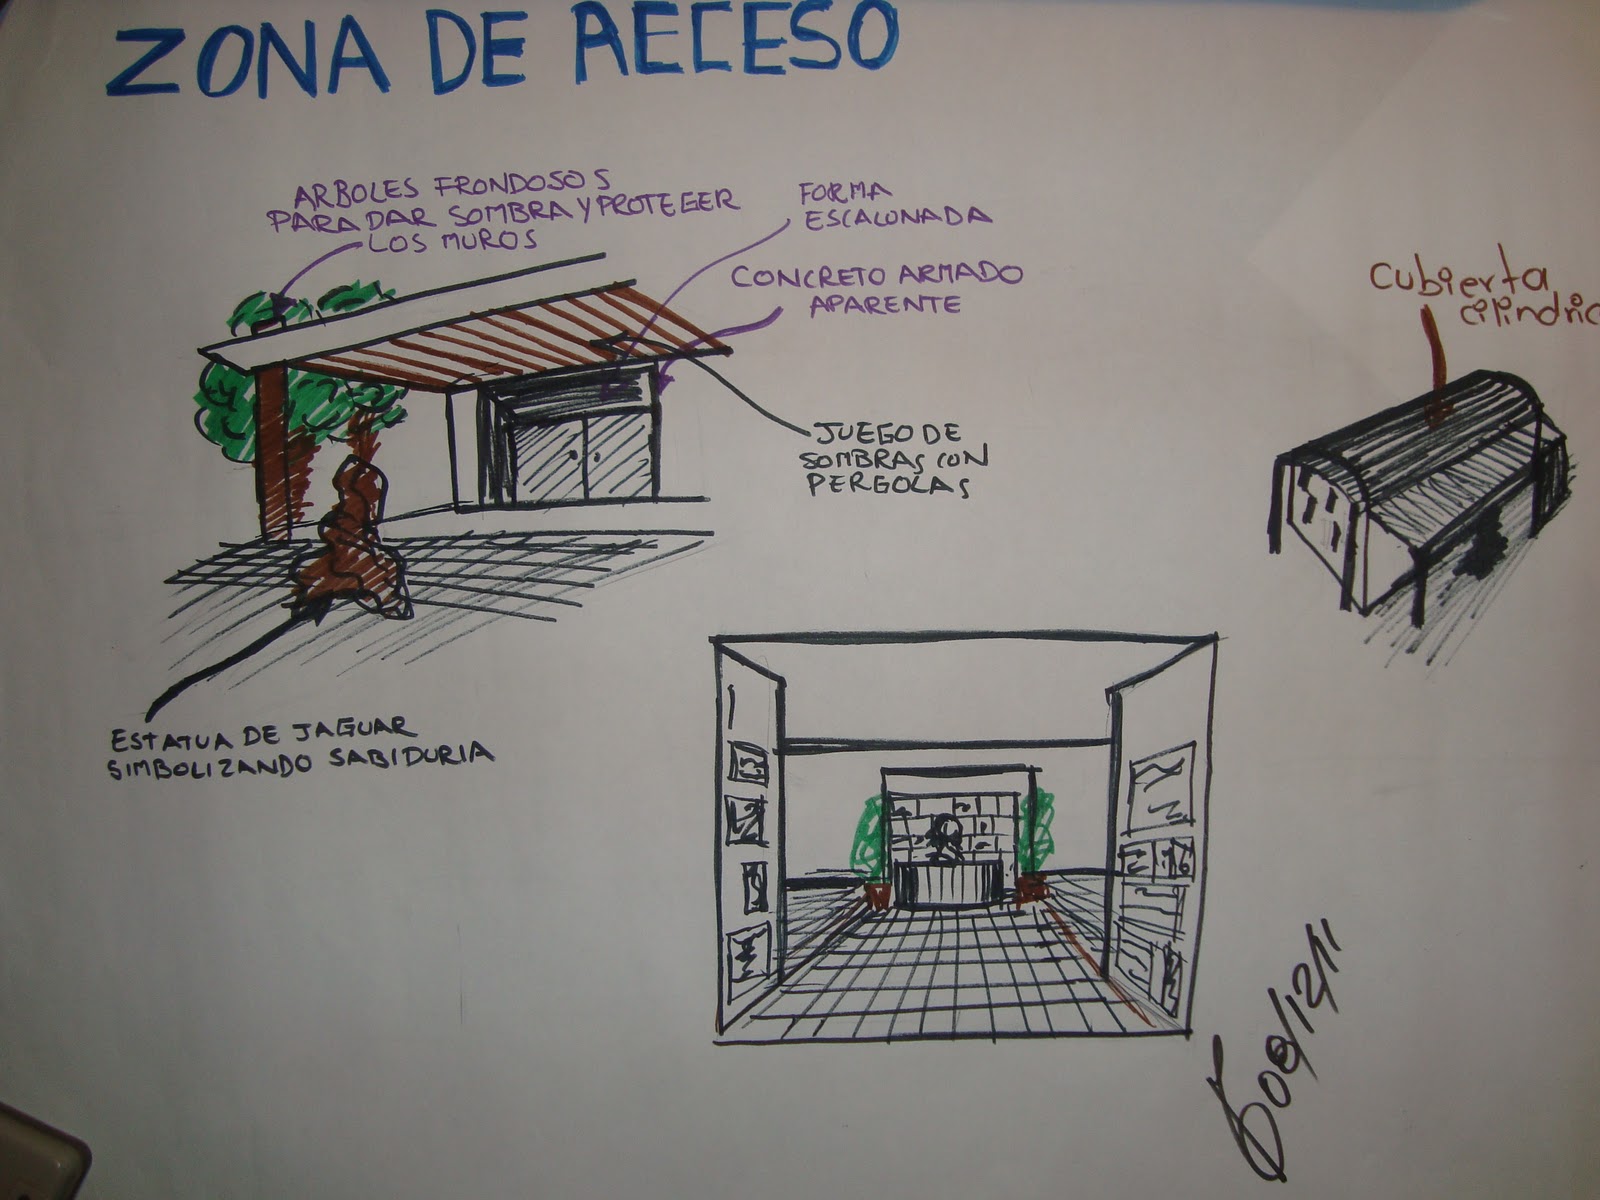 ZONA DE ACCESO
ARBOLES FRONDOSOS
PARA DAR SOMBRA Y PROTEGER
LOS MUROS
FORMA
ESCALONADA
CONCRETO ARMADO
APARENTE
cubierta
cilindric
JUEGO DE
SOMBRAS CON
PERGOLAS
ESTATUA DE JAGUAR
SIMBOLIZANDO SABIDURIA
08/12/11